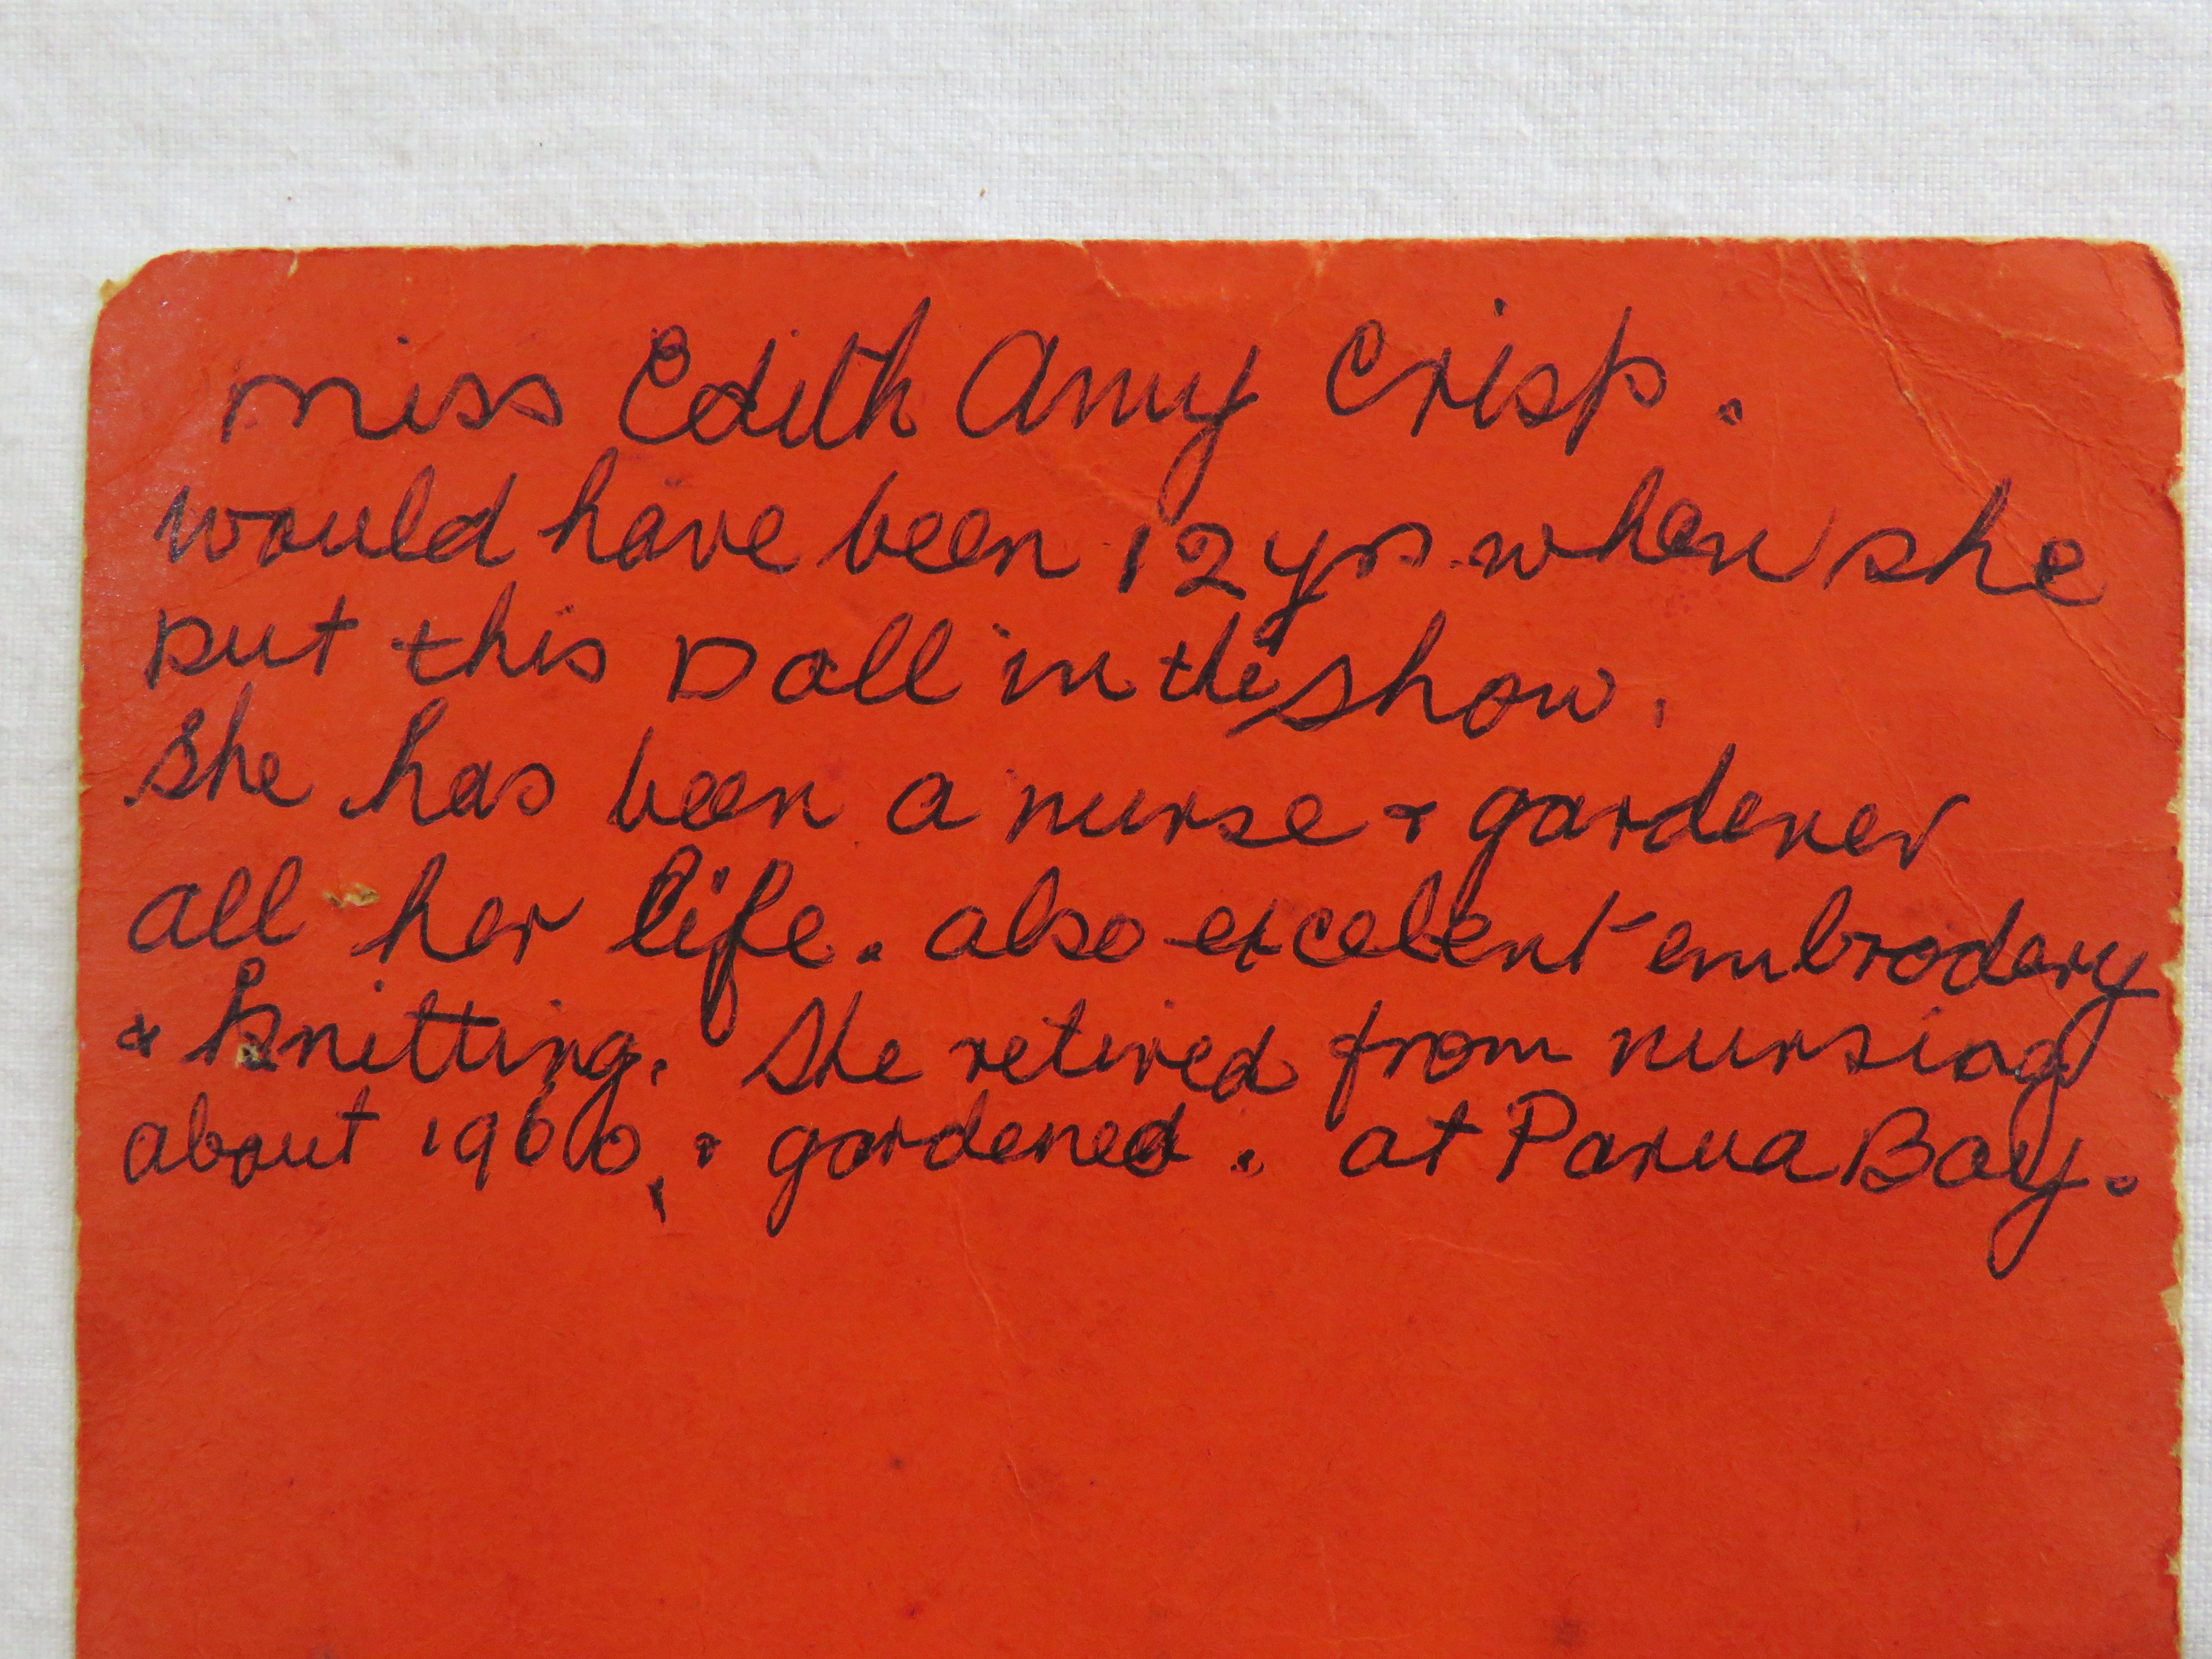 miss Edith Amy Crisp.
would have been 12 yrs when she
put this Doll in the show.
She has been a nurse & gardener
all her life. also excellent embrodery
& knitting. She retired from nursing
about 1960, & gardened. at Parua Bay.